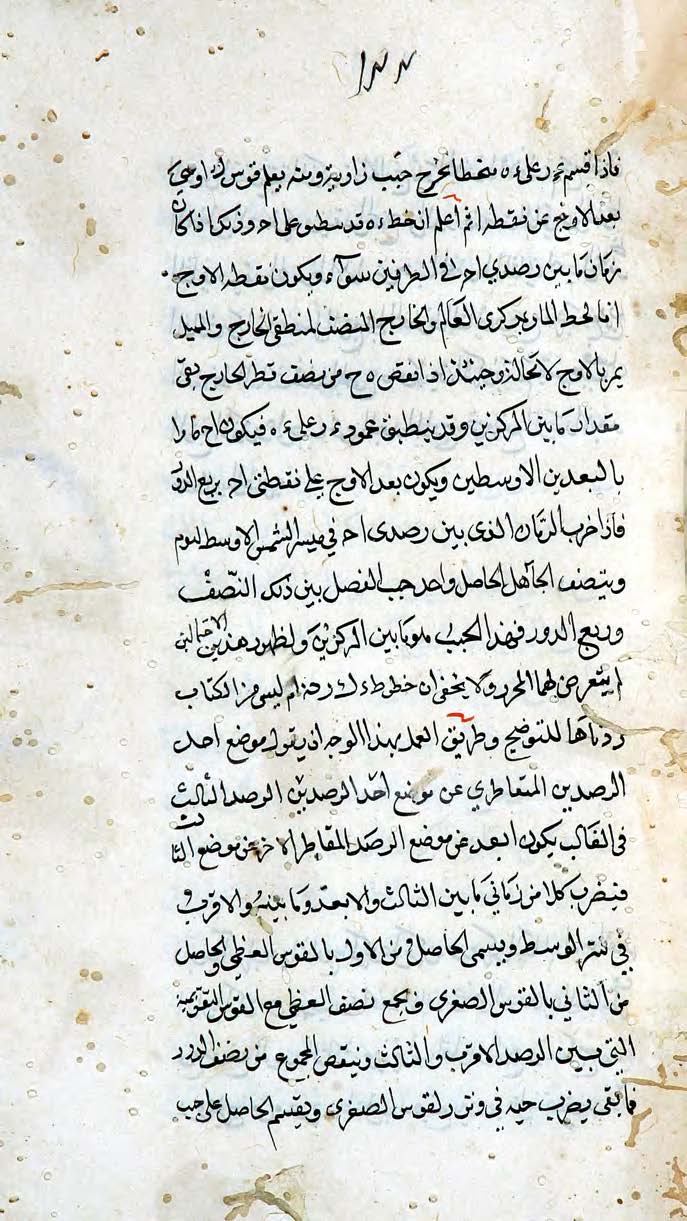 ١٣٣
فاذا قسم ء ر على ء ه منحطا يخرج جيب زاوية ومنه يعلم قوس
بعد الاوج عن نقطه ا ثم اعلم ان خط ء ه قد ينطبق على ا ح وذلك اذا كان
زمان ما بين رصدي ا ح في الطرفين سواء ويكون نقطه الاوج
اذ الخط المار بمركزى العالم والخارج المنصف لمنطقتى الخارج والمميل
يمر بالاوج لا محالة وحينئذ اذا نقص ه ح من نصف قطر الخارج بقى
مقدار ما بين المركزين وقد ينطبق عمود ء ر على ء ه فيكون ا ح مارا
بالبعدين الاوسطين ويكون بعد الاوج عن نقطتى ا ح بربع الدور
فاذا ضرب الزمان الذى بين رصدى ا ح في مسير الشمس الاوسط ليوم
وينصف الحاصل واخذ جيب الفضل بين ذلك النصف
وربع الدور فهذا الجيب هو ما بين المركزين ولظهور هذين الاحتمالين
لم يتعرض لهما المحرر ولا يخفى ان خطوط ليس من الكتاب
زدناها للتوضيح وطريق العمل بهذا الوجه ان يقول موضع احد
الرصدين المتقاطرين عن موضع احد الرصدين الرصد الثالث
فى الغالب يكون ابعد عن موضع الرصد المقاطر الاخر عن موضع الثالث
فيضرب كلا من زمانى ما بين الثالث والابعد وما بينه والاقرب
في سير الوسط ويسمى الحاصل من الاول بالقوس العظمى والحاصل
من الثاني بالقوس الصغرى ويجمع نصف العظمى مع القوس التقويمية
التى بين الرصد الاقرب والثالث وينقص المجموع من نصف الدور
فما بقى يضرب جيبه في وتر القوس الصغرى ويقسم الحاصل على جيب